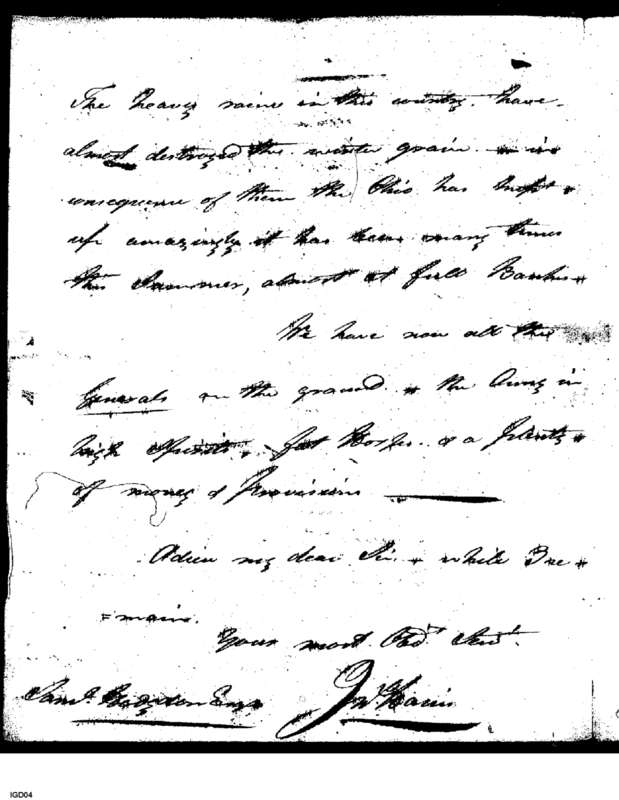 The heavy rains in this country. have
almost destroyed the winter grain in
consequence of them the Ohio has kept
up amazingly it has been many times
this Summer, almost at full Banks
We have now all the
Generals on the ground the Army in
high Spirits. fat Horses. & a plenty
of money & Provisions
Adieu my dear Sir while I re=
=main.
Your most Obdt Servt.
Saml. Hodgdon Esqr
Jno Harris
IGD04